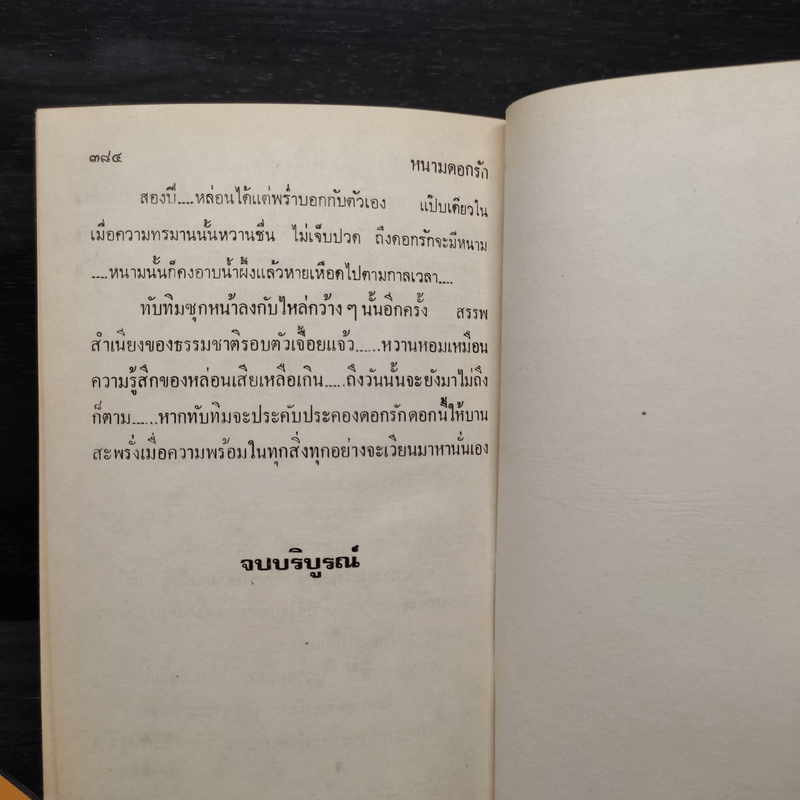 ๓๘๔ หนามดอกรัก
สองปี....หล่อนได้แต่พร่ำบอกกับตัวเอง แป๊บเดียวใน
เมื่อความทรมานนั้นหวานชื่น ไม่เจ็บปวด ถึงดอกรักจะมีหนาม
....หนามนั้นก็คงอาบน้ำผึ้งแล้วหายเหือดไปตามกาลเวลา....
ทับทิมซุกหน้าลงกับไหล่กว้าง ๆ นั้นอีกครั้ง สรรพ
สำเนียงของธรรมชาติรอบตัวเจื้อยแจ้ว......หวานหอมเหมือน
ความรู้สึกของหล่อนเสียเหลือเกิน.....ถึงวันนั้นจะยังมาไม่ถึง
ก็ตาม......หากทับทิมจะประคับประคองดอกรักดอกนี้ให้บาน
สะพรั่งเมื่อความพร้อมในทุกสิ่งทุกอย่างจะเวียนมาหานั่นเอง
จบบริบูรณ์